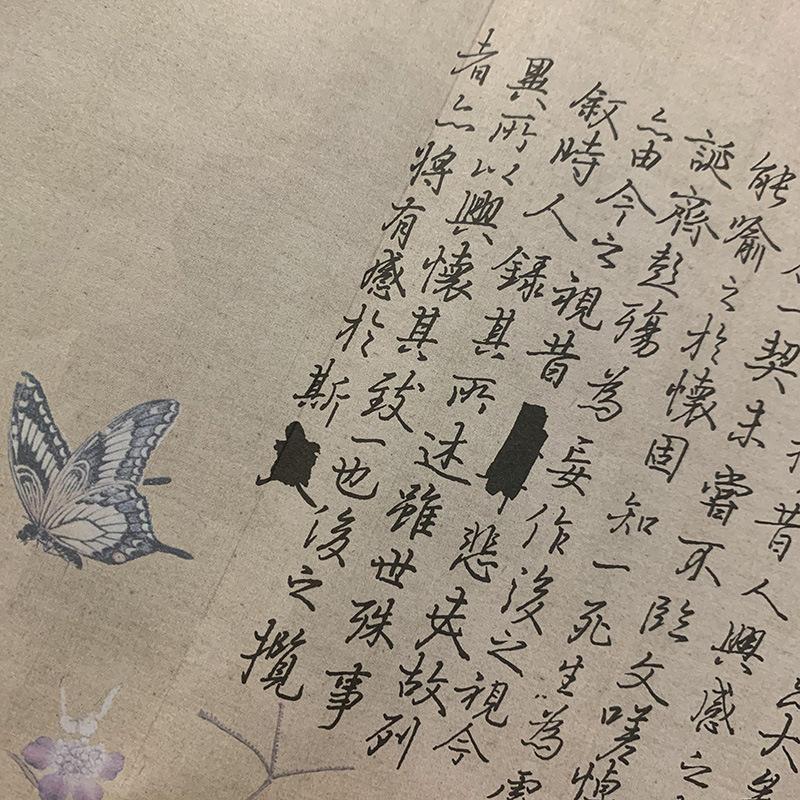 大
昔人興感之
一契未嘗不臨文嗟悼
能喻之於懷固知一死生為虛
誕齊彭殤為妄作後之視今
亦由今之視昔悲夫故列
敘時人錄其所述雖世殊事
異所以興懷其致一也後之攬
者亦將有感於斯